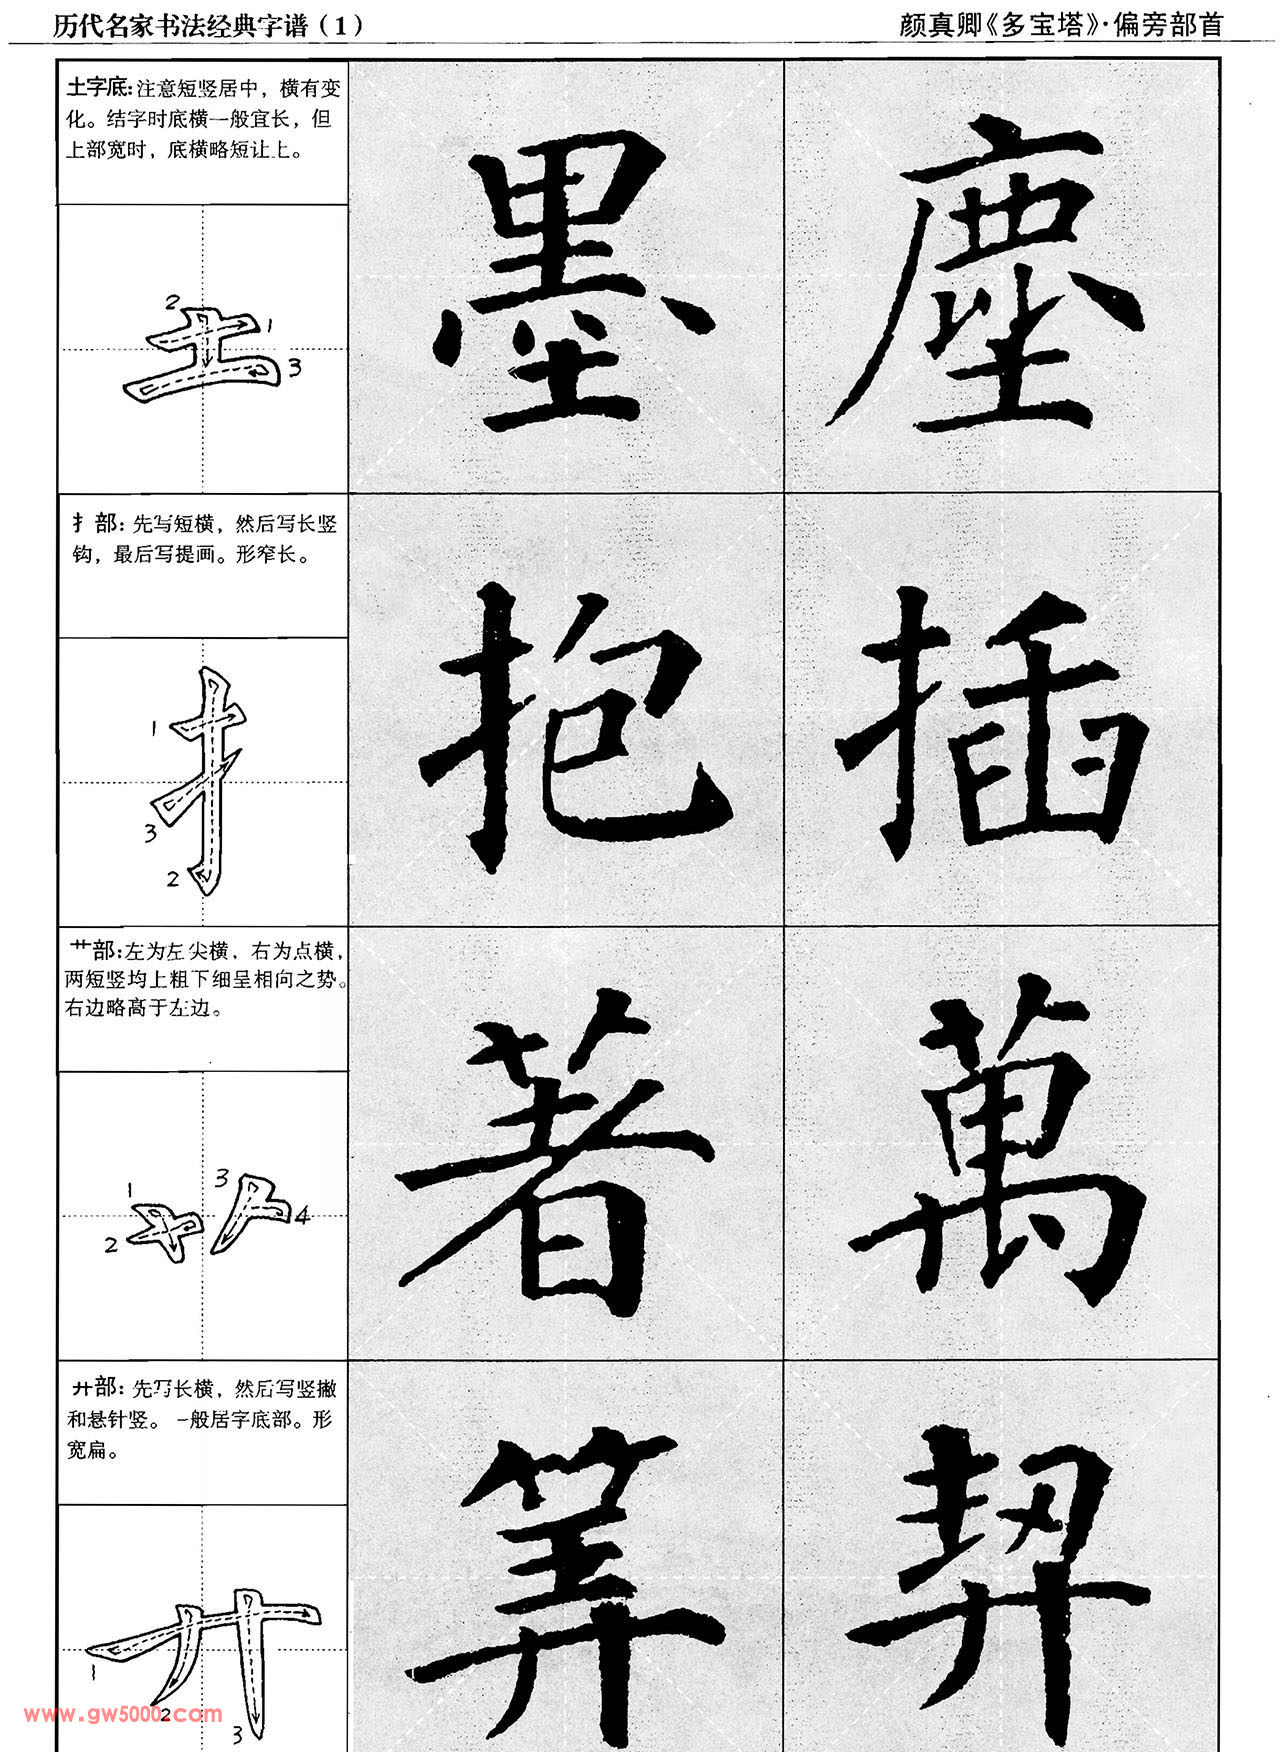 历代名家书法经典字谱（1）
颜真卿《多宝塔》·偏旁部首
土字底：注意短竖居中，横有变
化。结字时底横一般宜长，但
上部宽时，底横略短让上。
墨
塵
2
1
3
扌部：先写短横，然后写长竖
钩，最后写提画。形窄长。
抱
插
1
3
2
艹部：左为左尖横，右为点横，
两短竖均上粗下细呈相向之势。
右边略高于左边。
著
萬
1
2
3
4
廾部：先写长横，然后写竖撇
和悬针竖。一般居字底部。形
宽扁。
1
2
3
www.gw5000.com